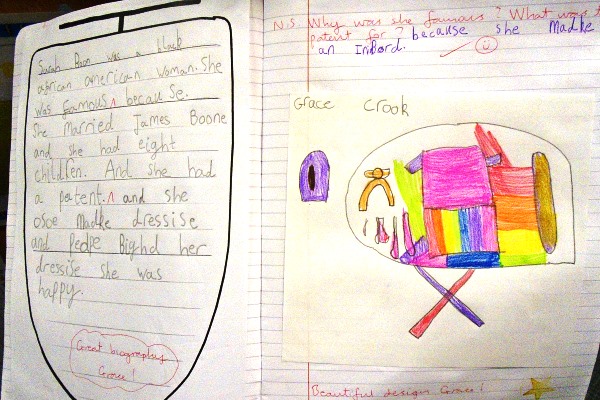 Sarah Boon was a black
african american woman. She
was famous ^ because.
She Married James Boone
and she had eight
children. And she had
a patent. ^ and she
osoe Madke dressise
and Pedpe Bighd her
dressise she was
happy.
Great biography
Grace!
N.S. Why was she famous? What was t
patent for? because she Madke
an InBord.
Grace Crook
Beautiful design Grace!